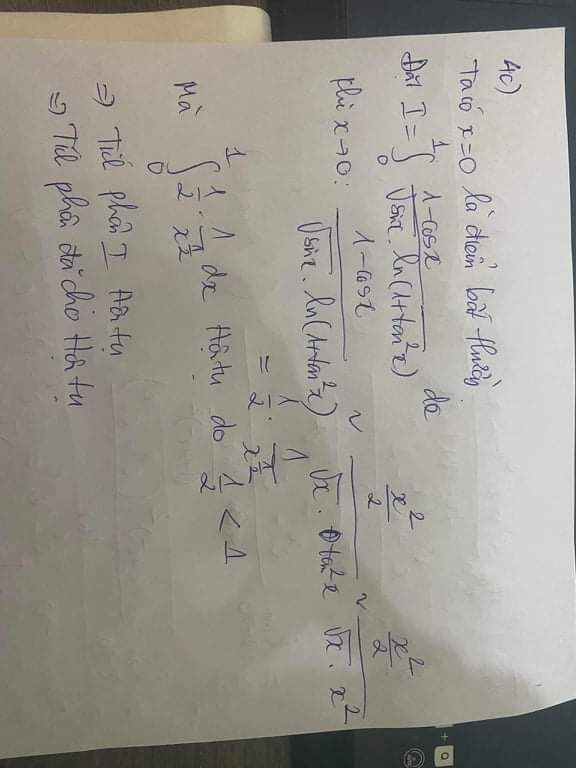 4c)
Ta có x=0 là điểm bất thường.
Đặt I = ∫₀¹ (1-cosx)/(√sinx . ln(1+tan²x)) dx
khi x→0: (1-cosx)/(√sinx . ln(1+tan²x)) ~ (x²/2)/(√x . tan²x) ~ (x²/2)/(√x . x²)
= 1/2 . 1/x^(1/2)
Mà ∫₀¹ 1/2 . 1/x^(1/2) dx Hội tụ do 1/2 < 1
⇒ Tích phân I Hội tụ
⇒ Tích phân đã cho Hội tụ
a